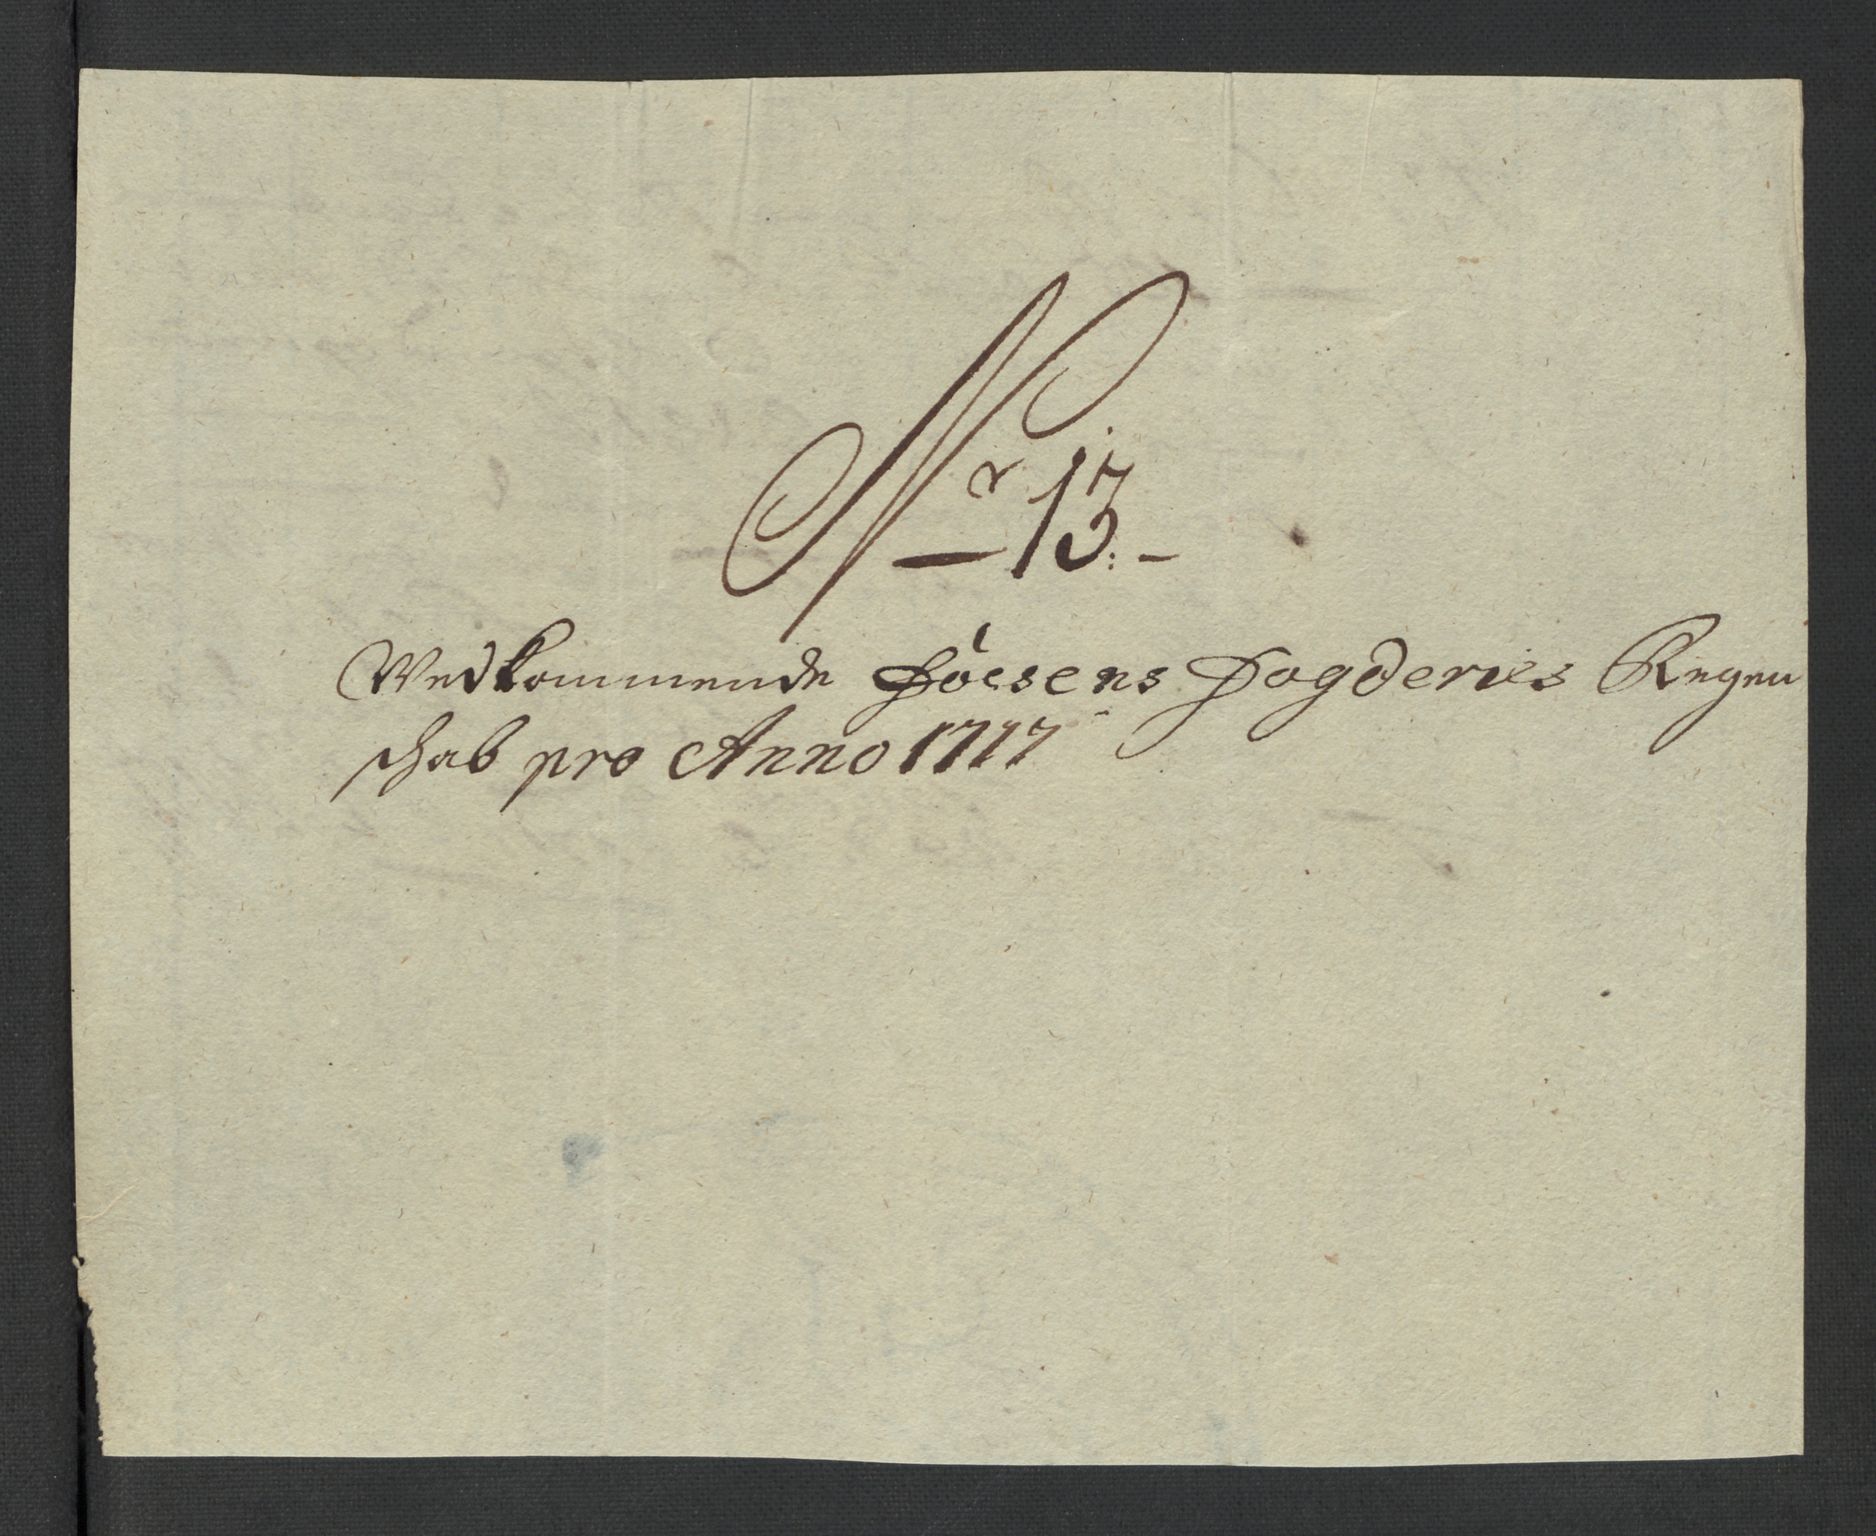 Nr 13.
Vedkommende Fosens Fogderies Regen
schab pro Anno 1717